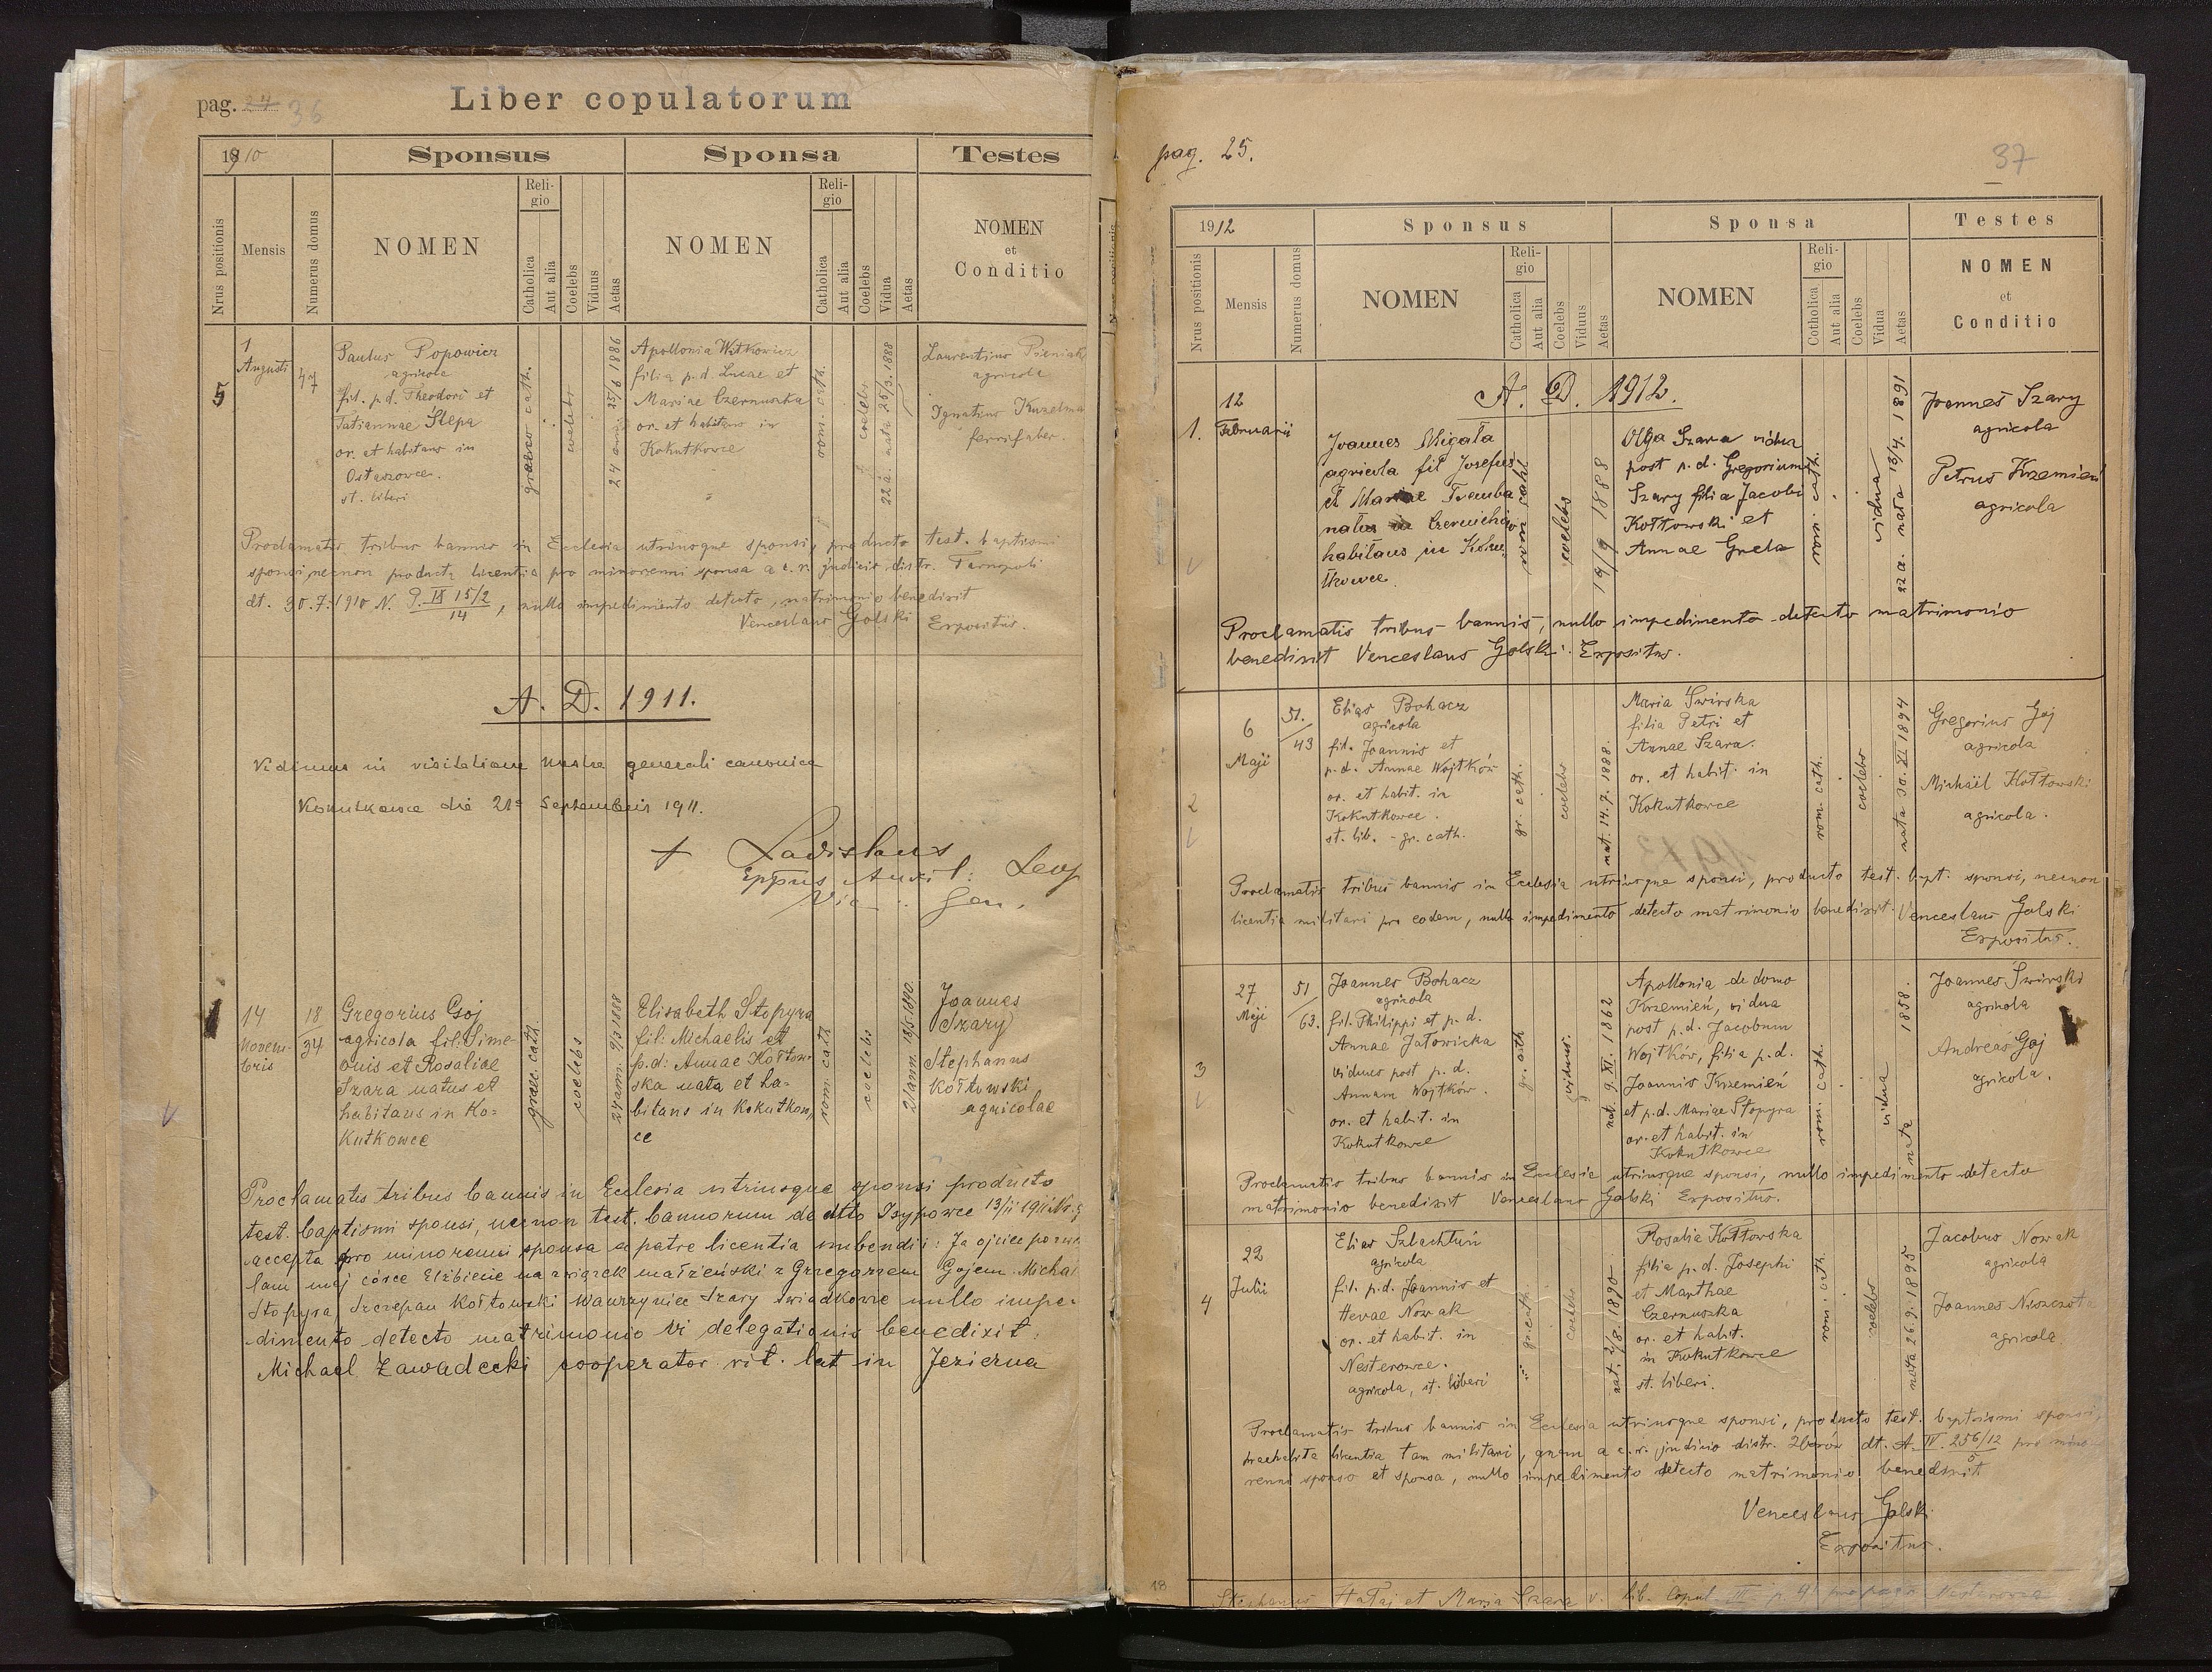 pag. 24 36
Liber copulatorum
1910
Sponsus
Sponsa
Testes
Nrus positionis
Mensis
Numerus domus
NOMEN
Religio
Catholica
Aut alia
Coelebs
Viduus
Aetas
NOMEN
Religio
Catholica
Aut alia
Coelebs
Vidua
Aetas
NOMEN
et
Conditio
5
1
Augusti
47
Paulus Popowicz
agricola
fil. p.d. Theodori et
Tatiannae Slepa
or. et habitans in
Ostaszowce.
st. liberi
graeco cath.
coelebs
24 ann. 25/6 1886
Apollonia Witkowicz
filia p.d. Lucae et
Mariae Czernuszka
or. et habitans in
Kokutkowce
rom. cath.
coelebs
22 a. nata 25/3. 1888
Laurentius Pieniak
agricola
Ignatius Kuzelma
ferrifaber.
Proclamatis tribus bannis in Ecclesia utriusque sponsi, producto test. baptismi
sponsi, necnon producta licentia pro minorenni sponsa a c.r. judicio distr. Tarnopoli
dt. 30.7.1910 N. P. IX 15/2
14, nullo impedimento detecto, matrimonio benedixit
Venceslaus Golski Expositus.
A. D. 1911.
Vidimus in visitatione nostra generali canonica
Kokutkowce die 21a Septembris 1911.
+ Ladislaus
Eppus Auxil: Leop
Vic. Gen.
1
14
Novembris
18
34
Gregorius Goj
agricola fil: Sime-
onis et Rosaliae
Szara natus et
habitans in Ko=
kutkowce
graec. cath.
coelebs
24 ann. 9/3 1888
Elisabeth Stopyra
fil: Michaelis et
p.d: Annae Kołtow-
ska nata et ha-
bitans in Kokutkow,
ce
rom. cath
coelebs
21 ann. 18/5. 1890.
Joannes
Szary
Stephanus
Kołtowski
agricolae
Proclamatis tribus bannis in Ecclesia utriusque sponsi producto
test. baptismi sponsi, necnon test. bannorum de dtto Isypowce 13/11 1911 Nr. 5
accepta pro minorenni sponsa a patre licentia nubendi: Ja ojciec pozwa
lam mej córce Elżbiecie na związek małżeński z Grzegorzem Gojem. Michał
Stopyra, Szczepan Kołtowski Wawrzyniec Szary świadkowie nullo impe-
dimento detecto matrimonio vi delegationis benedixit.
Michael Zawadecki cooperator rit. lat in Jezierna
pag. 25.
37
1912
Sponsus
Sponsa
Testes
Nrus positionis
Mensis
Numerus domus
NOMEN
Religio
Catholica
Aut alia
Coelebs
Viduus
Aetas
NOMEN
Religio
Cotholica
Aut alia
Coelebs
Vidua
Aetas
NOMEN
et
Conditio
A. D. 1912.
1.
12
Februarii
Joannes Migała
agricola fil Josephus
et Mariae Tremba
natus in Czernichów
habitans in Koku,
tkowce.
rom cath
coelebs
19/9 1888
Olga Szara vidua
post p.d. Gregorium
Szary filia Jacobi
Kołtowski et
Annae Greda
rom. cath.
vidua
22 a. nata 13/4. 1891
Joannes Szary
agricola
Petrus Krzemień
agricola
Proclamatis tribus bannis, nullo impedimento detecto matrimonio
benedixit Venceslaus Golski. Expositus.
2
6
Maji
51.
43
Elias Bohacz
agricola
fil. Joannis et
p.d. Annae Wojtków
or. et habit. in
Kokutkowce.
st. lib. - gr. cath.
gr. cath.
coelebs
nat. 14.7. 1888.
Maria Świrska
filia Petri et
Annae Szara.
or. et habit. in
Kokutkowce
rom. cath.
coelebs
nata 30. XI 1894
Gregorius Goj
agricola
Michaël Kołtowski
agricola.
Proclamatis tribus bannis in Ecclesia utriusque sponsi, producto test. bapt. sponsi, necnon
licentia militari pro eodem, nullo impedimento detecto matrimonio benedixit. Venceslaus Golski
Expositus.
3
27
Maji
51
63.
Joannes Bohacz
agricola
fil. Philippi et p.d.
Annae Jatowicka
viduus post p.d.
Annam Wojtków.
or. et habit. in
Kokutkowce
gr. cath
viduus.
nat. 9. XI. 1862
Apollonia de domo
Krzemień, vidua
post p.d. Jacobum
Wojtków, filia p.d.
Joannis Krzemień
et p.d. Mariae Stopyra
or. et habit. in
Kokutkowce
rom. cath.
vidua
nata 1858.
Joannes Świrski
agricola
Andreas Goj
agricola.
Proclamatis tribus bannis in Ecclesia utriusque sponsi, nullo impedimento detecto
matrimonio benedixit Venceslaus Golski Expositus.
4
22
Julii
Elias Szlachtun
agricola
fil. p.d. Joannis et
Hevae Nowak
or. et habit. in
Nesterowce.
agricola, st. liberi
gr. cath.
coelebs
nat. 2/8. 1890
Rosalia Kołtowska
filia p.d. Josephi
et Marthae
Czernuszka
or. et habit.
in Kokutkowce
st. liberi.
rom. cath.
coelebs
nata 26.9. 1895
Jacobus Nowak
agricola
Joannes
agricola
Proclamatis tribus bannis in Ecclesia utriusque sponsi, producto test. baptismi sponsi,
praehabita licentia tam militari, quam a c.r. judicio distr. Zborów dt. A. IV. 256/12 pro mino-
5
renni sponso et sponsa, nullo impedimento detecto matrimonio benedixit
Venceslaus Golski
Expositus.
18
Stephanus Hałaj et Maria Szara v. lib. Copul. III p. 41 pro paro. Nesterowce